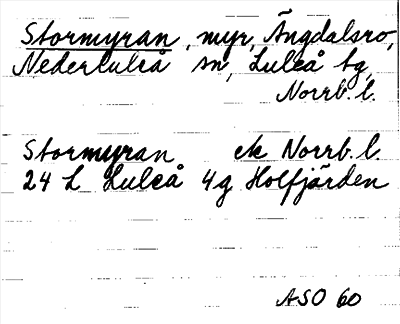 Stormyran, myr, Ängdalsro,
Nederluleå sn, Luleå tg,
Norrb. l.
Stormyran ek Norrb. l.
24 L Luleå 4g Holfjärden
ASO 60